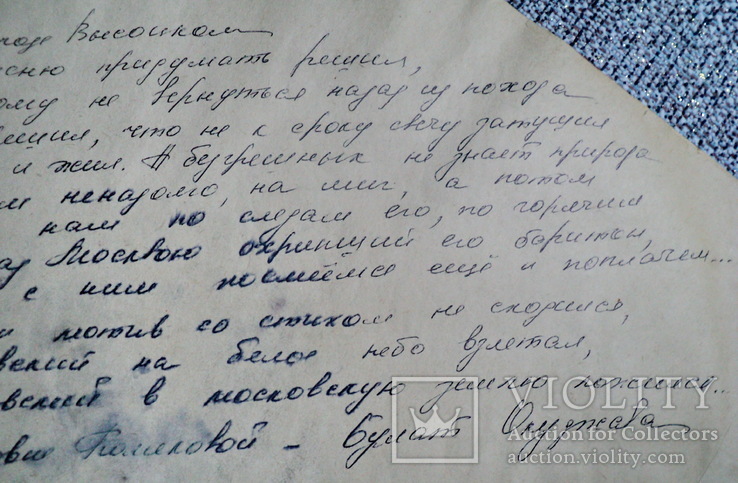 Высоцком
придумать решил,
не вернуться назад из похода
что не к сроку свечу затушил
и жил. А безгрешных не знает природа
ненадолго, на миг, а потом
нам по следам его, по горячим
Москвою охрипший его баритон,
с ним посмеёмся ещё и поплачем...
мотив со стихом не сходился,
на белое небо взлетал,
в московскую землю
Поляковой - Булат Окуджава
VIOLITY
Auction for Collectors
auction.violity.com